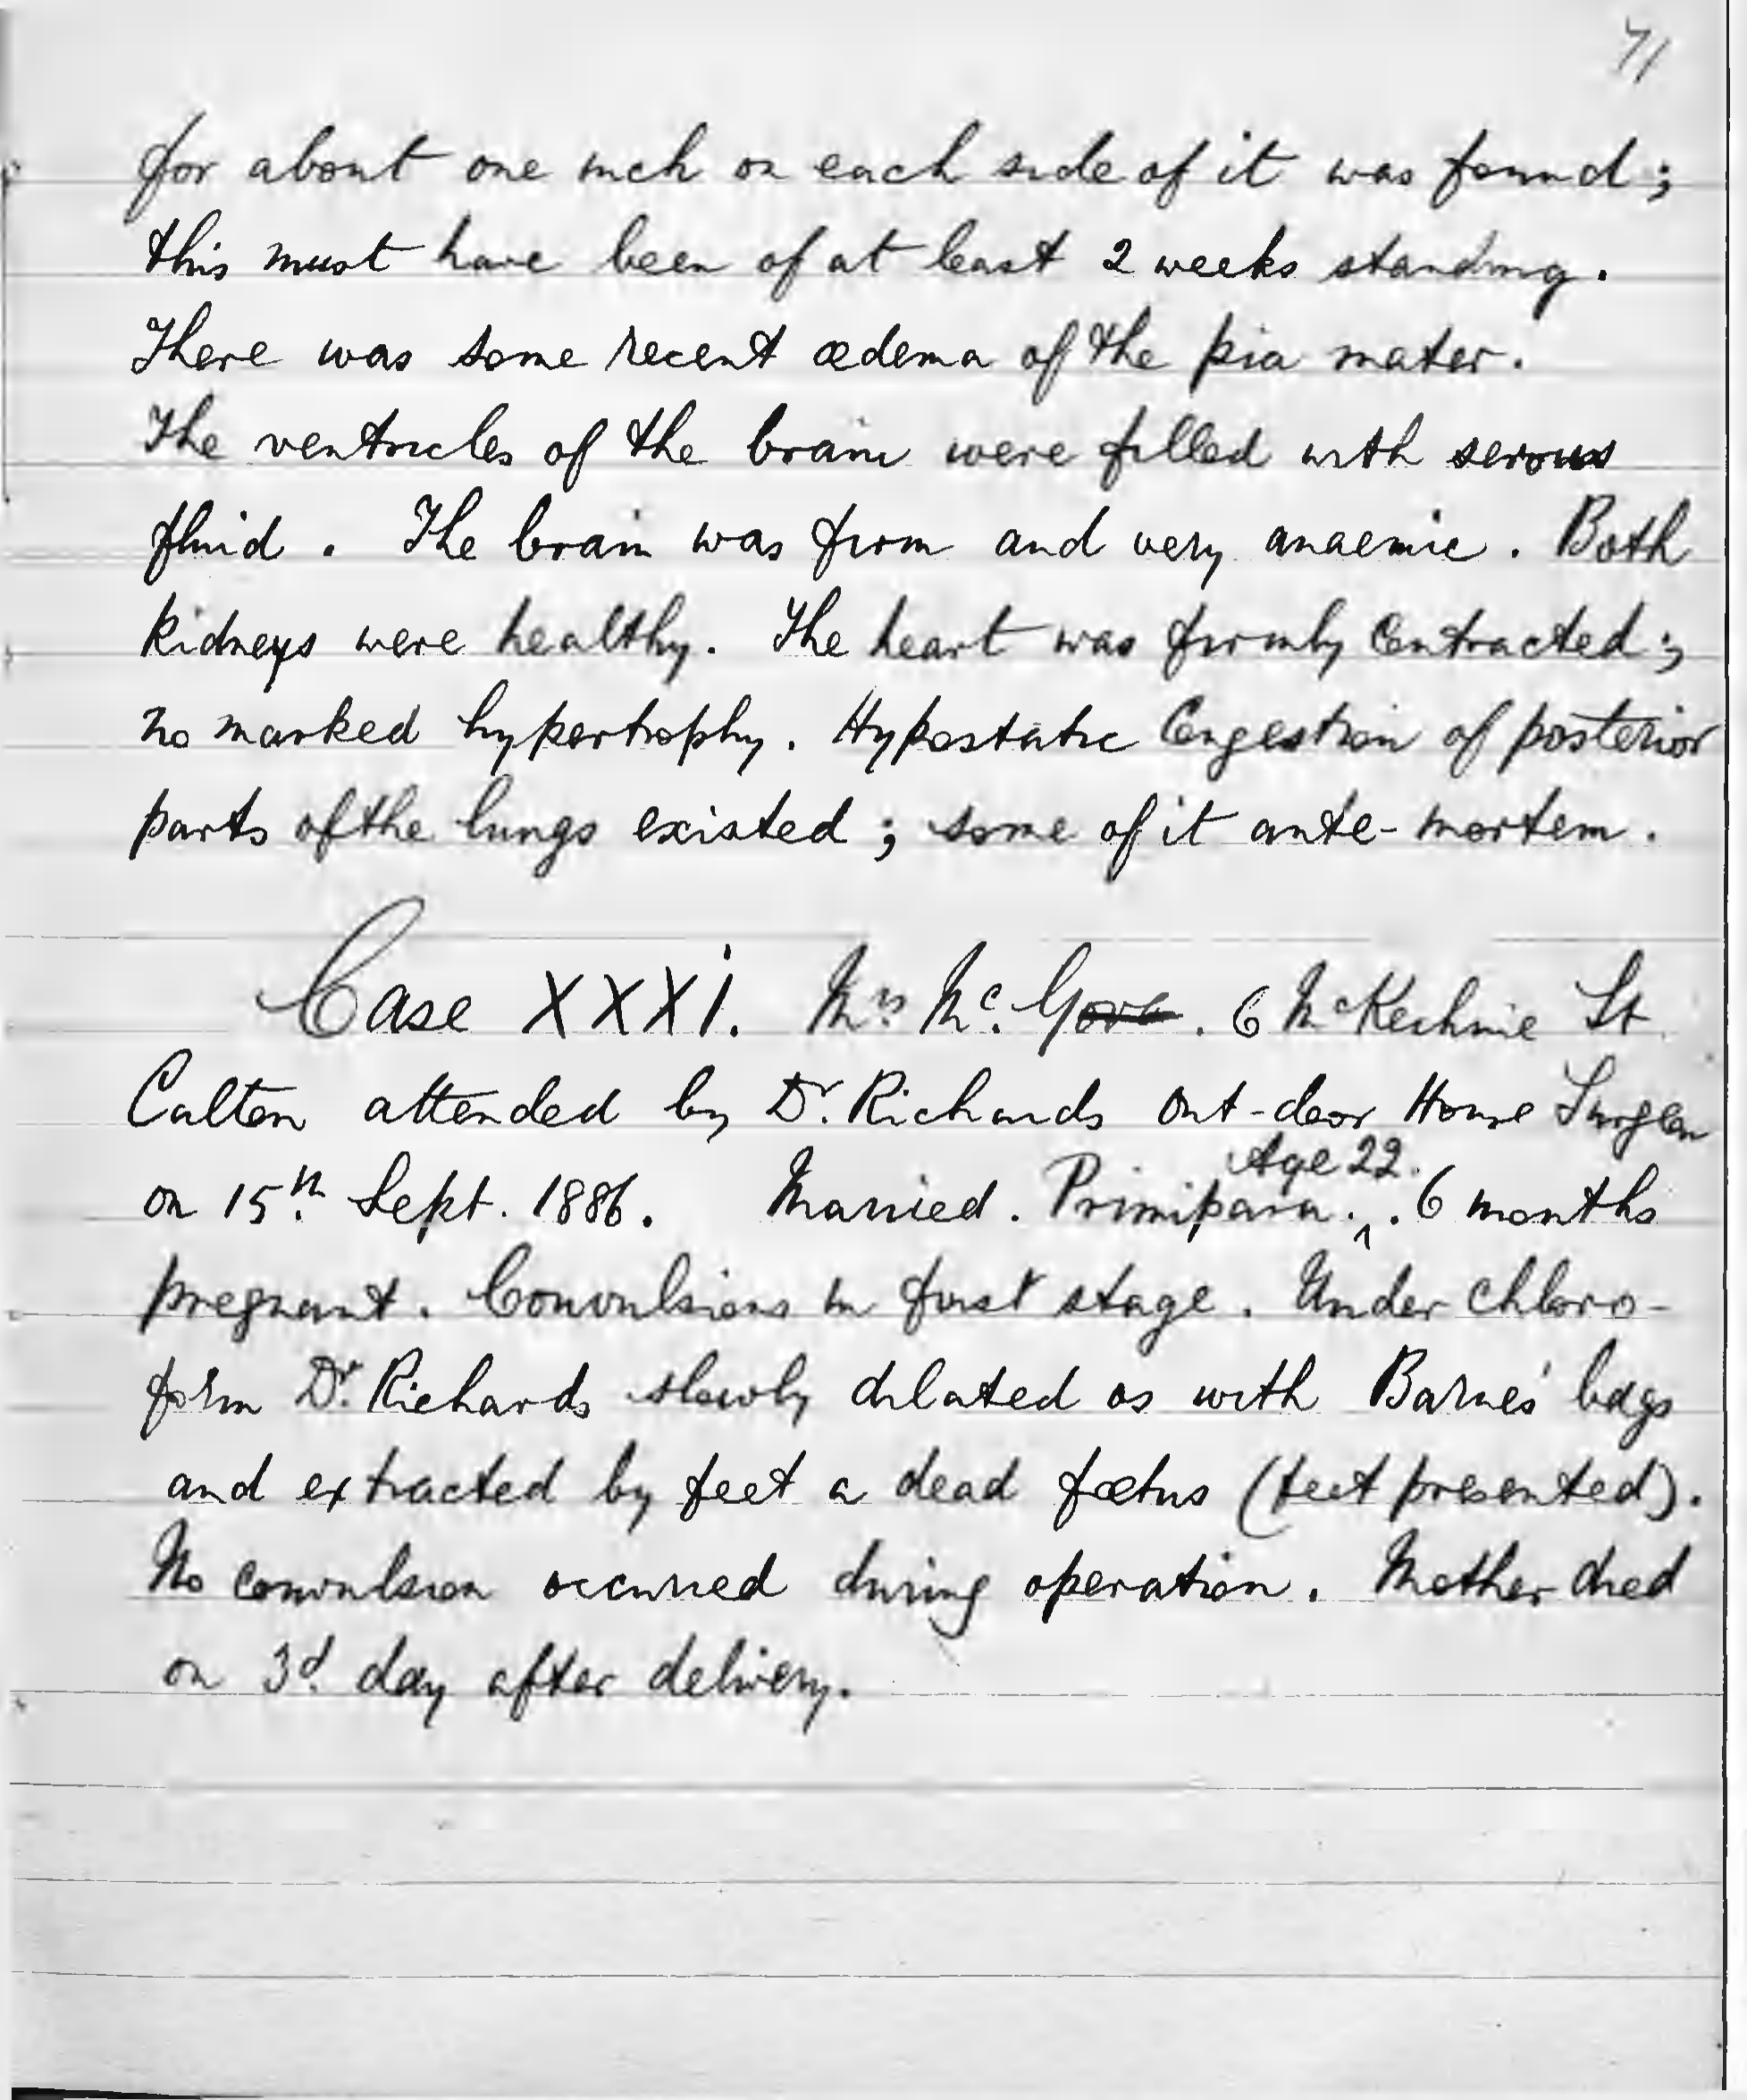 71
for about one inch on each side of it was found;
this must have been of at least 2 weeks standing.
There was some recent œdema of the pia mater.
The ventricles of the brain were filled with serous
fluid. The brain was firm and very anaemic. Both
kidneys were healthy. The heart was firmly contracted;
no marked hypertrophy. Hypostatic Congestion of posterior
parts of the lungs existed; some of it ante-mortem.
Case XXXI. Mrs Mc. G. 6 McKechnie St
Calton attended by Dr. Richards Out-door House Surgeon
on 15th Sept. 1886. Married. Primipara. Age 22. 6 months
pregnant. Convulsions in first stage. Under chloro-
form Dr. Richards slowly dilated os with Barnes' bags
and extracted by feet a dead fœtus (feet presented).
No convulsion occurred during operation. Mother died
on 3d. day after delivery.